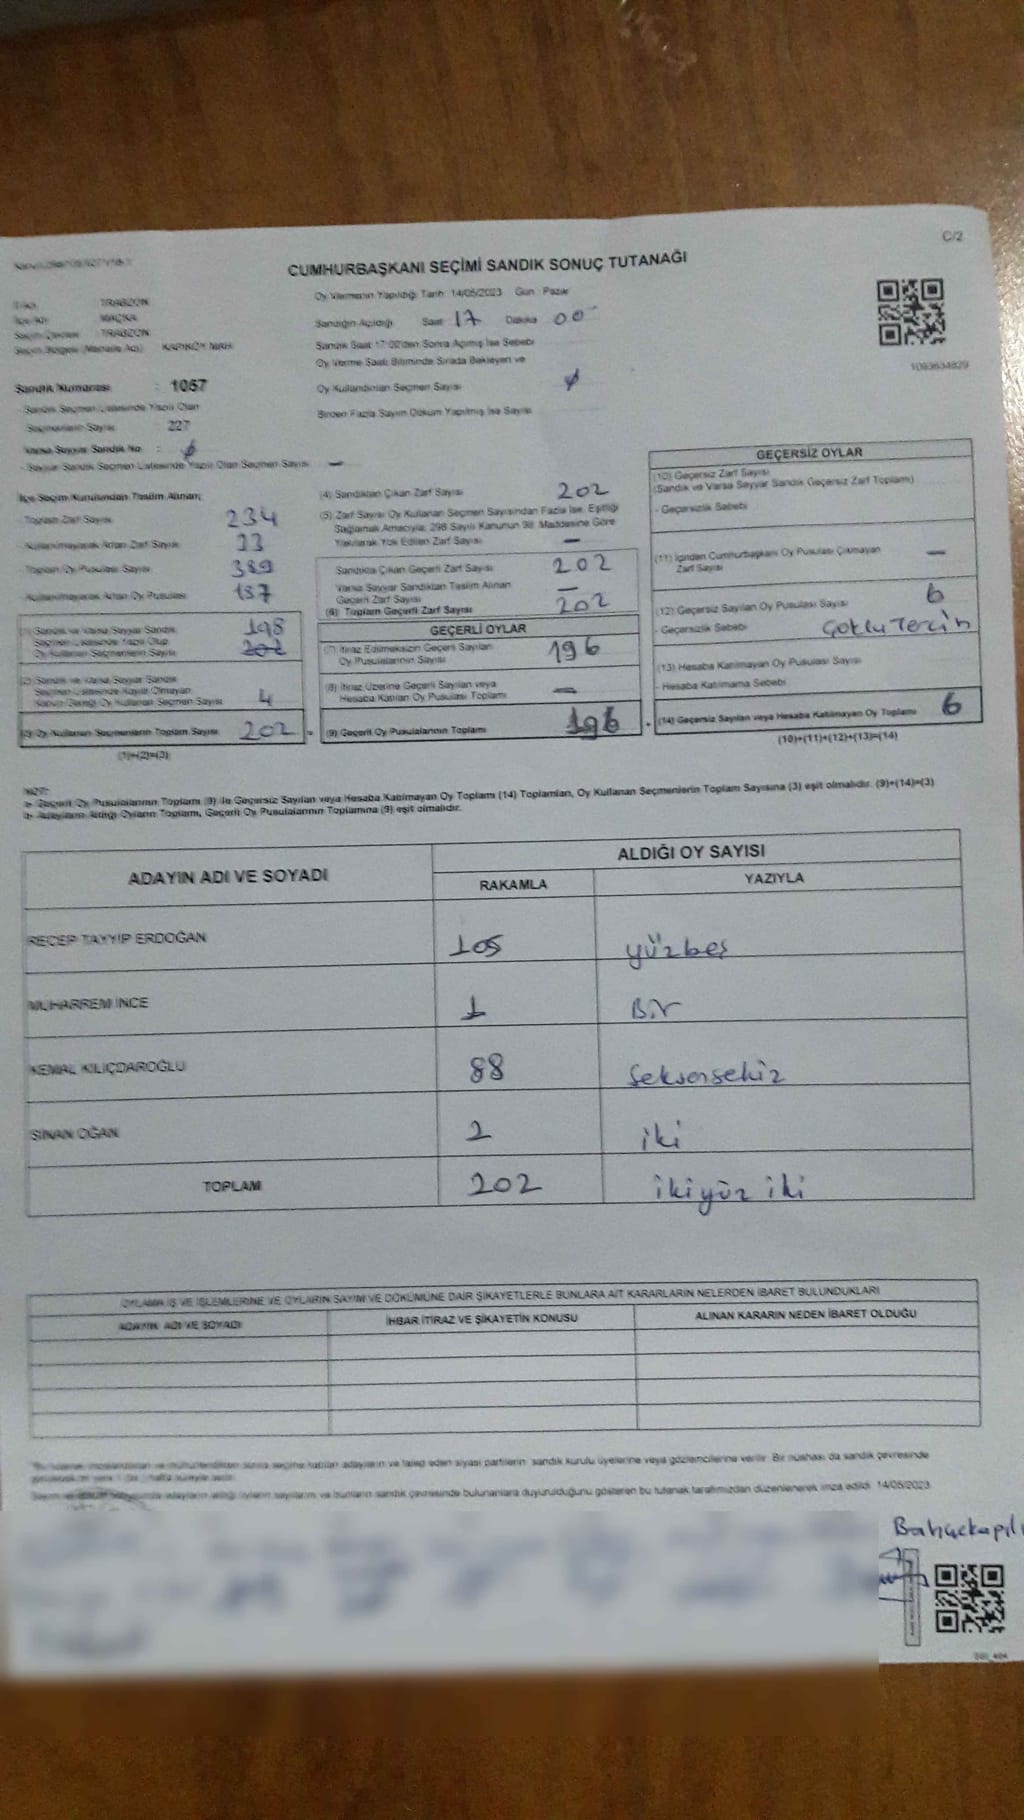 C/2
CUMHURBAŞKANI SEÇİMİ SANDIK SONUÇ TUTANAĞI
Oy Vermenin Yapıldığı Tarih: 14/05/2023 Gün : Pazar
TRABZON
MAÇKA
TRABZON
Sandığın Açıldığı Saat 17 Dakika 00
Sandık Saat 17:00'den Sonra Açılmış İse Sebebi
Oy Verme Saati Bitiminde Sırada Bekleyen ve
Oy Kullandırılan Seçmen Sayısı
Birden Fazla Sayım Döküm Yapılmış İse Sayısı
1093634829
Sandık Numarası : 1057
- Sandık Seçmen Listesinde Yazılı Olan
Seçmenlerin Sayısı : 227
Varsa Seyyar Sandık No :
- Seyyar Sandık Seçmen Listesinde Yazılı Olan Seçmen Sayısı —
İlçe Seçim Kurulundan Teslim Alınan;
- Toplam Zarf Sayısı 234
- Kullanılmayarak Artan Zarf Sayısı 33
- Toplam Oy Pusulası Sayısı 389
- Kullanılmayarak Artan Oy Pusulası 187
(1) Sandık ve Varsa Seyyar Sandık
Seçmen Listesinde Yazılı Olup
Oy Kullanan Seçmenlerin Sayısı 198 202
(2) Sandık ve Varsa Seyyar Sandık
Seçmen Listesinde Kayıtlı Olmayan
Kanun Gereği Oy Kullanan Seçmen Sayısı 4
(3) Oy Kullanan Seçmenlerin Toplam Sayısı 202 =
(1)+(2)=(3)
(4) Sandıktan Çıkan Zarf Sayısı 202
(5) Zarf Sayısı Oy Kullanan Seçmen Sayısından Fazla İse, Eşitliği
Sağlamak Amacıyla, 298 Sayılı Kanunun 98. Maddesine Göre
Yakılarak Yok Edilen Zarf Sayısı —
Sandıkta Çıkan Geçerli Zarf Sayısı 202
Varsa Seyyar Sandıktan Teslim Alınan
Geçerli Zarf Sayısı —
(6) Toplam Geçerli Zarf Sayısı 202
GEÇERLİ OYLAR
(7) İtiraz Edilmeksizin Geçerli Sayılan
Oy Pusulalarının Sayısı 196
(8) İtiraz Üzerine Geçerli Sayılan veya
Hesaba Katılan Oy Pusulası Toplamı —
(9) Geçerli Oy Pusulalarının Toplamı 196 +
GEÇERSİZ OYLAR
(10) Geçersiz Zarf Sayısı
(Sandık ve Varsa Seyyar Sandık Geçersiz Zarf Toplamı)
- Geçersizlik Sebebi
(11) İçinden Cumhurbaşkanı Oy Pusulası Çıkmayan
Zarf Sayısı —
(12) Geçersiz Sayılan Oy Pusulası Sayısı 6
- Geçersizlik Sebebi Çoklu Tercih
(13) Hesaba Katılmayan Oy Pusulası Sayısı
- Hesaba Katılmama Sebebi
(14) Geçersiz Sayılan veya Hesaba Katılmayan Oy Toplamı 6
(10)+(11)+(12)+(13)=(14)
NOT:
a- Geçerli Oy Pusulalarının Toplamı (9) ile Geçersiz Sayılan veya Hesaba Katılmayan Oy Toplamı (14) Toplamları, Oy Kullanan Seçmenlerin Toplam Sayısına (3) eşit olmalıdır. (9)+(14)=(3)
b- Adayların Aldığı Oyların Toplamı, Geçerli Oy Pusulalarının Toplamına (9) eşit olmalıdır.
ADAYIN ADI VE SOYADI
ALDIĞI OY SAYISI
RAKAMLA YAZIYLA
RECEP TAYYİP ERDOĞAN 105 yüzbeş
MUHARREM İNCE 1 Bir
KEMAL KILIÇDAROĞLU 88 Seksensekiz
SİNAN OĞAN 2 iki
TOPLAM 202 ikiyüz iki
OYLAMA İŞ VE İŞLEMLERİNE VE OYLARIN SAYIM VE DÖKÜMÜNE DAİR ŞİKAYETLERLE BUNLARA AİT KARARLARIN NELERDEN İBARET BULUNDUKLARI
ADAYIN ADI VE SOYADI
İHBAR İTİRAZ VE ŞİKAYETİN KONUSU
ALINAN KARARIN NEDEN İBARET OLDUĞU
sonra seçime katılan adayların ve talep eden siyasi partilerin sandık kurulu üyelerine veya gözlemcilerine verilir. Bir nüshası da sandık çevresinde
adayların aldığı oyların sayılarını ve bunların sandık çevresinde bulunanlara duyurulduğunu gösteren bu tutanak tarafımızdan düzenlenerek imza edildi. 14/05/2023
Bahçekapılı